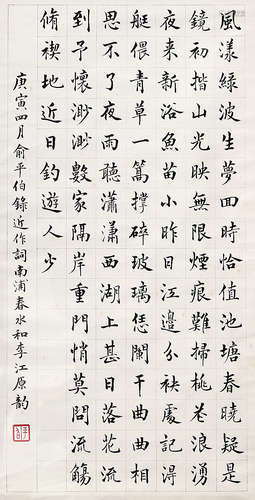 風漾綠波生夢回時恰值池塘春曉疑是
鏡初揩山光映無限煙痕難掃桃花浪湧
夜來新浴魚苗小昨日江邊分袂處記得
艇偎青草一篙撐碎玻璃恁闌干曲曲相
思不了夜雨聽瀟瀟西湖上甚日落花流
到予懷渺渺數家隔岸重門悄莫問流觴
脩禊地近日釣遊人少
庚寅四月俞平伯錄近作詞南浦春水和李江原韵